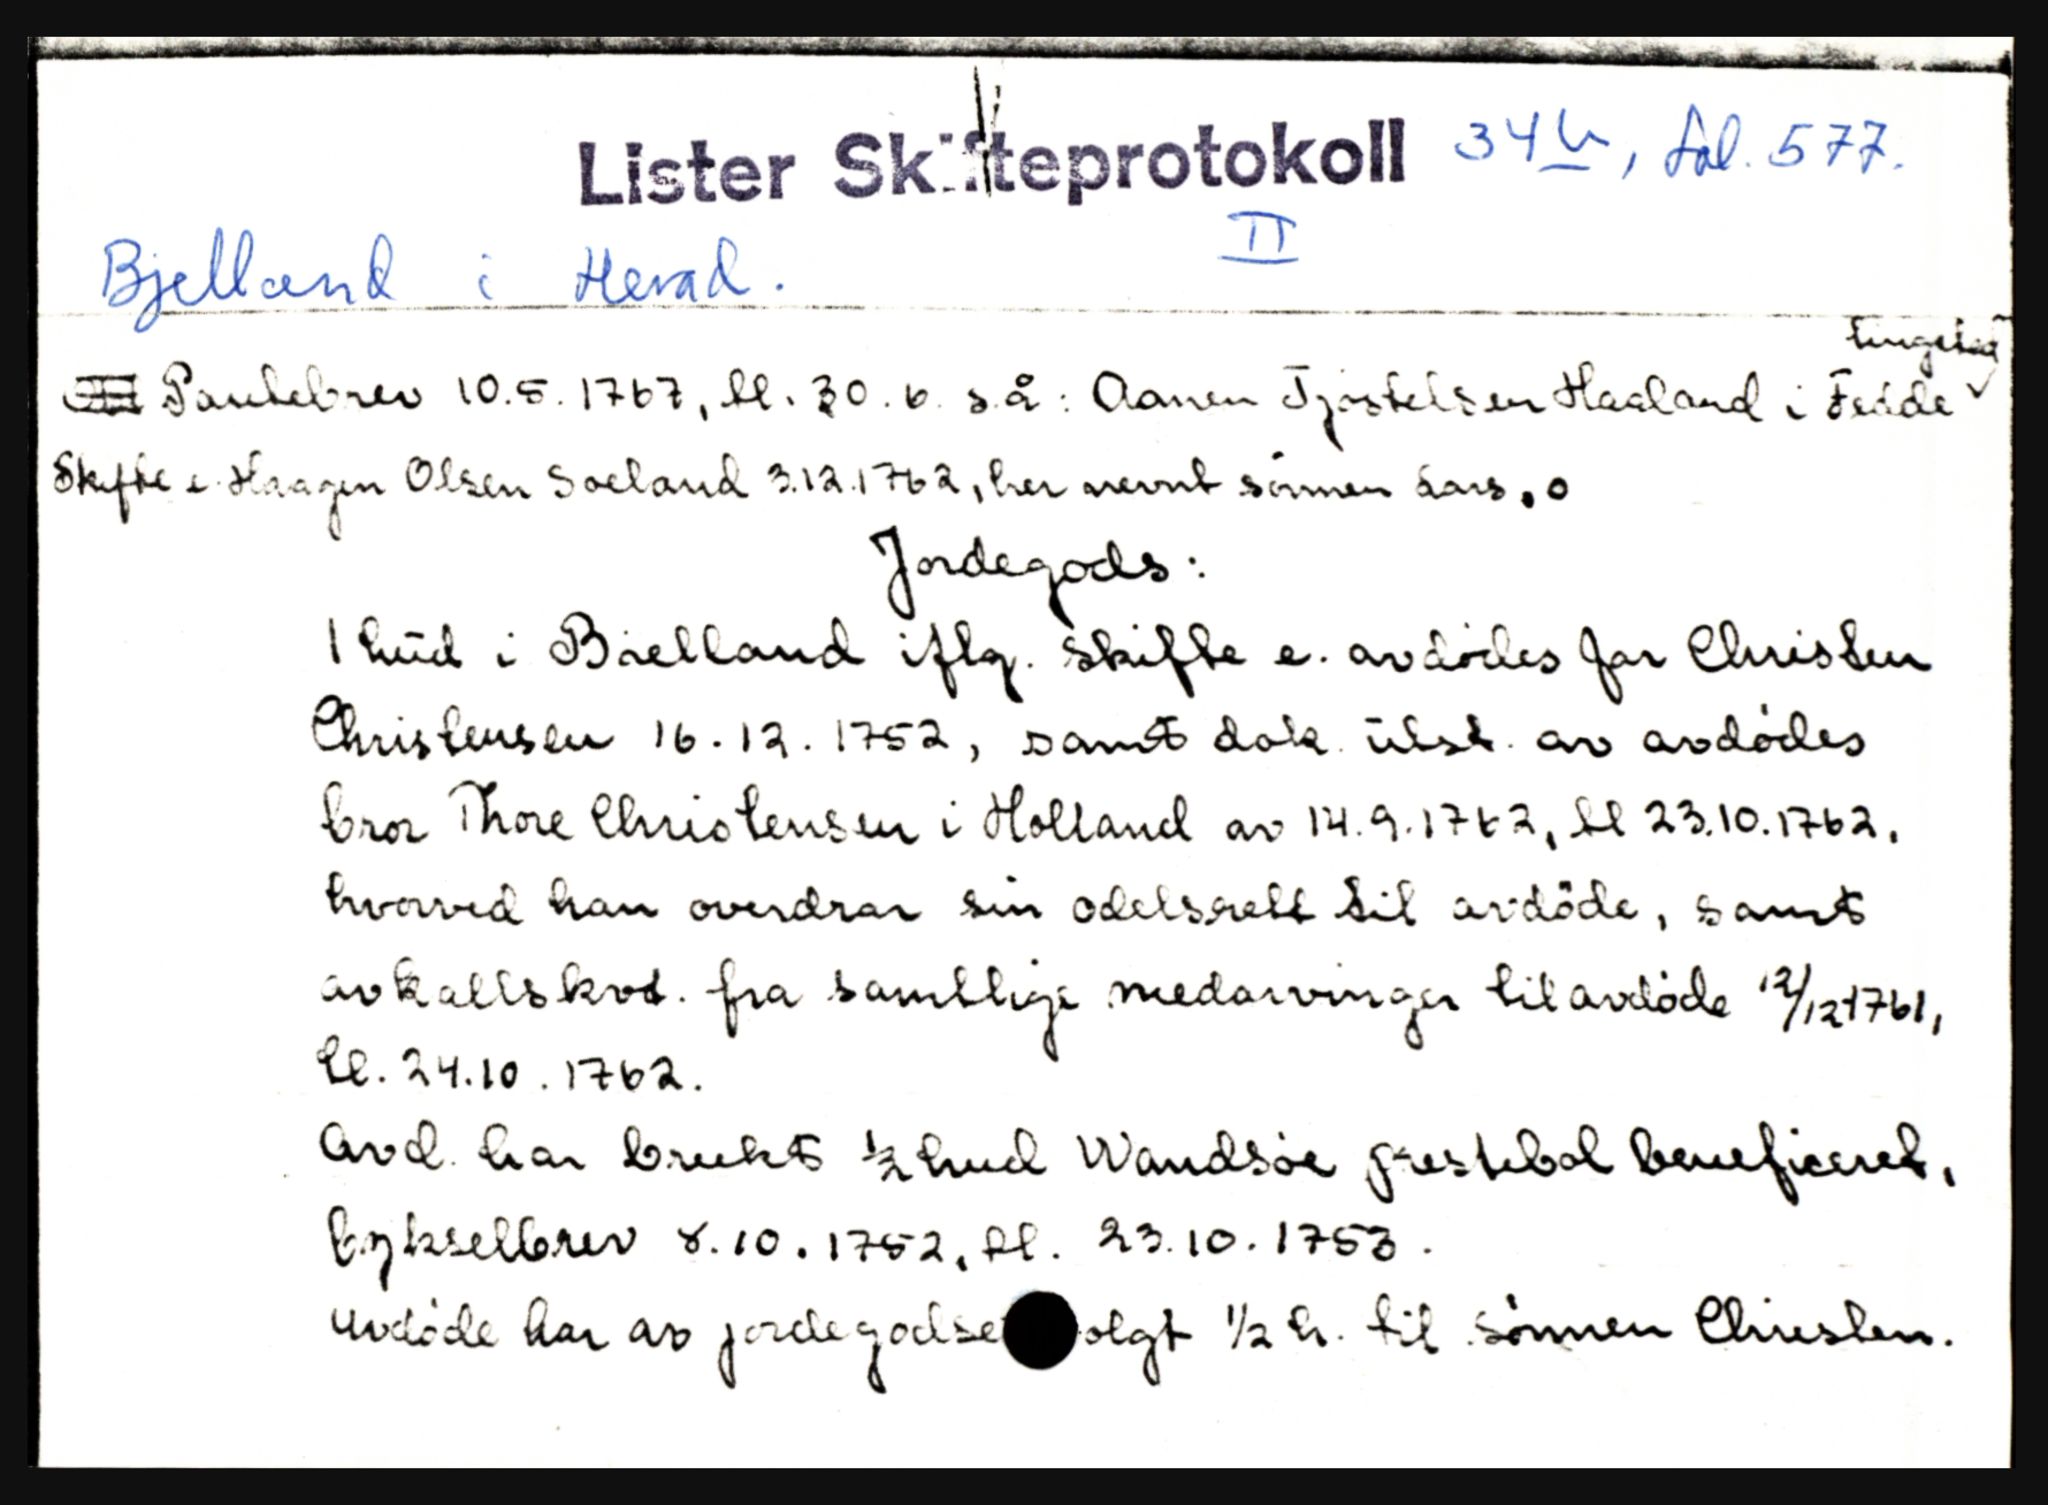 Lister Skifteprotokoll 34b, fol. 577.
II
Bjelland i Herad.
tingsted
Pantebrev 10.5.1767, tl. 30.6. s.å: Aanen Tjøstelsen Haaland i Fedde
Skifte e. Haagen Olsen Soeland 3.12.1762, her nevnt sönnen Lars.
Jordegods:
1 hüd i Bielland iflg. skifte e. avdödes far Christen
Christensen 16.12.1752, samt dok. ütst. av avdödes
bror Thore Christensen i Holland av 14.9.1762, tl 23.10.1762,
hvorved han overdrar sin odelsrett til avdöde, samt
avkallskvt. fra samtlige medarvinger til avdöde 12/12 1761,
tl. 24.10.1762.
Avd. har brukt 1/2 hud Wandsöe prestebol beneficeret,
bykselbrev 8.10.1752, tl. 23.10.1753.
Avdöde har av jordegodse olgt 1/2 h. til sönnen Christen.